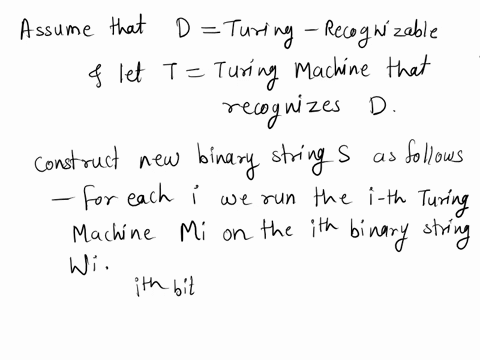 Assume that D = Turing - Recognizable
& let T = Turing Machine that
recognizes D.
construct new binary string S as follows
- for each i we run the i-th Turing
Machine Mi on the ith binary string
Wi.
ith bit